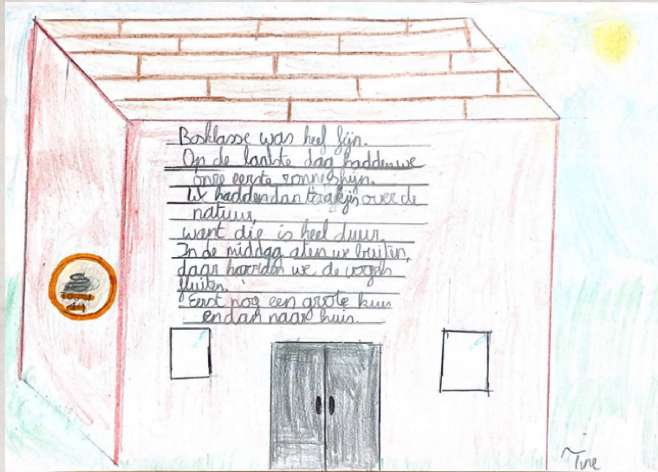 Bosklasse was heel fijn.
Op de laatste dag hadden we
onze eerste zonneshijn.
We hadden dan praktijs over de
natuur,
want die is heel duur.
In de middag aten we bruiten,
daar hoorden we de vogels
fluiten.
Eerst nog een grote kuis
en dan naar huis.
Tine